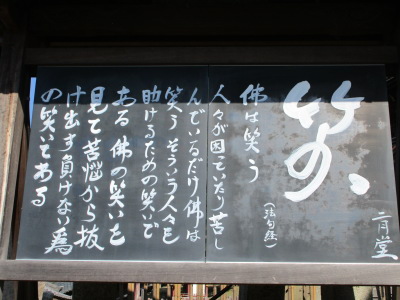 笑
二月堂
佛は笑う
(法句経)
人々が困っていたり苦し
んでいるだけ佛は
笑う そういう人々を
助けるための笑いで
ある 佛の笑いを
見て苦悩から抜
け出す負けない為
の笑いである